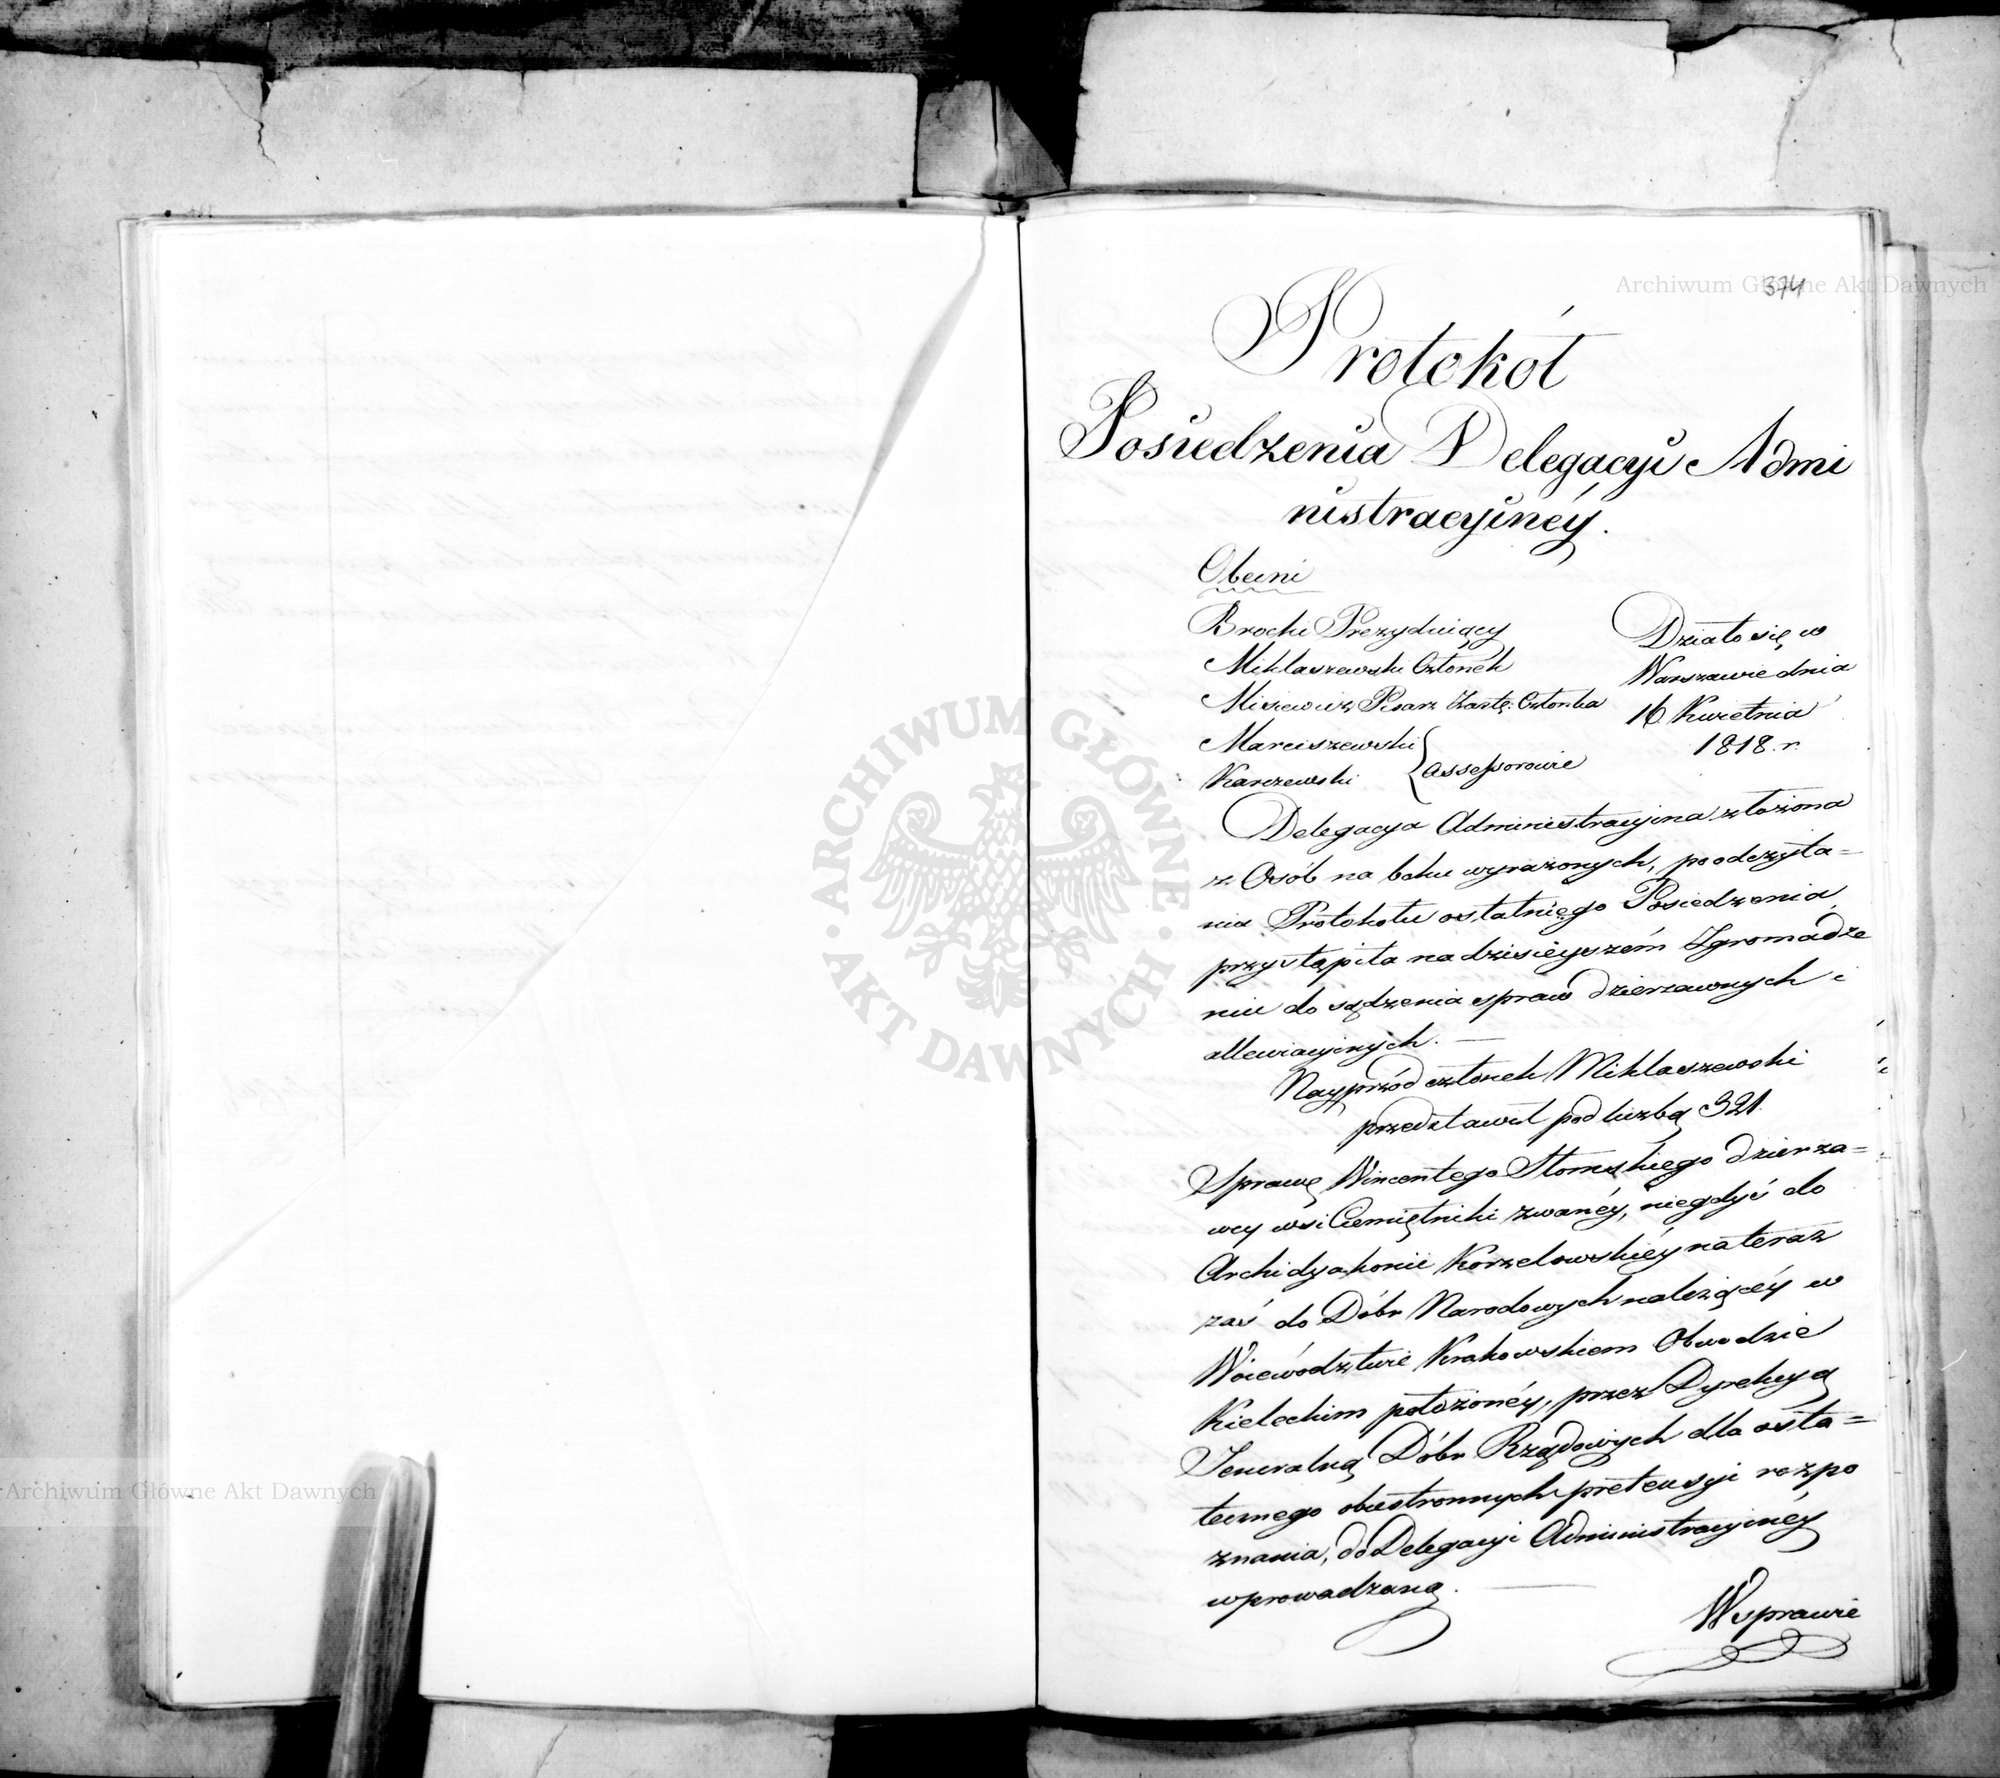 374
Protokół
Posiedzenia Delegacyi Admi
nistracyinéy.
Obecni
Brocki Prezyduiący
Miklaszewski Członek
Misiewicz Pisarz Zastę: Członka
Marciszewski
Karczewski } Assessorowie
Działo się w
Warszawie dnia
16 Kwietnia
1818. r.
Delegacya Administracyina złożona
z Osób na boku wyrażonych, po odczyta=
niu Protokołu ostatniego Posiedzenia
przystąpiła na dzisieyszém Zgromadze
niu do sądzenia spraw dzierzawnych i
allewiacyinych. —
Nayprzód członek Miklaszewski
przedstawił pod liczbą 321.
Sprawę Wincentego Słomskiego dzierza=
wcy wsi Ciemiętniki zwanéy, niegdyś do
Archidyakonii Kurzelowskiéy na teraz
zaś do Dóbr Narodowych należącéy w
Woiewództwie Krakowskiem Obwodzie
Kieleckim położonéy, przez Dyrekcyą
Jeneralną Dóbr Rządowych dla osta=
tecznego obustronnych pretensyi rozpo
znania, do Delegacyi Administracyinéy
wprowadzoną. —
W sprawie
ARCHIWUM GŁÓWNE · AKT DAWNYCH ·
Archiwum Główne Akt Dawnych
Archiwum Główne Akt Dawnych